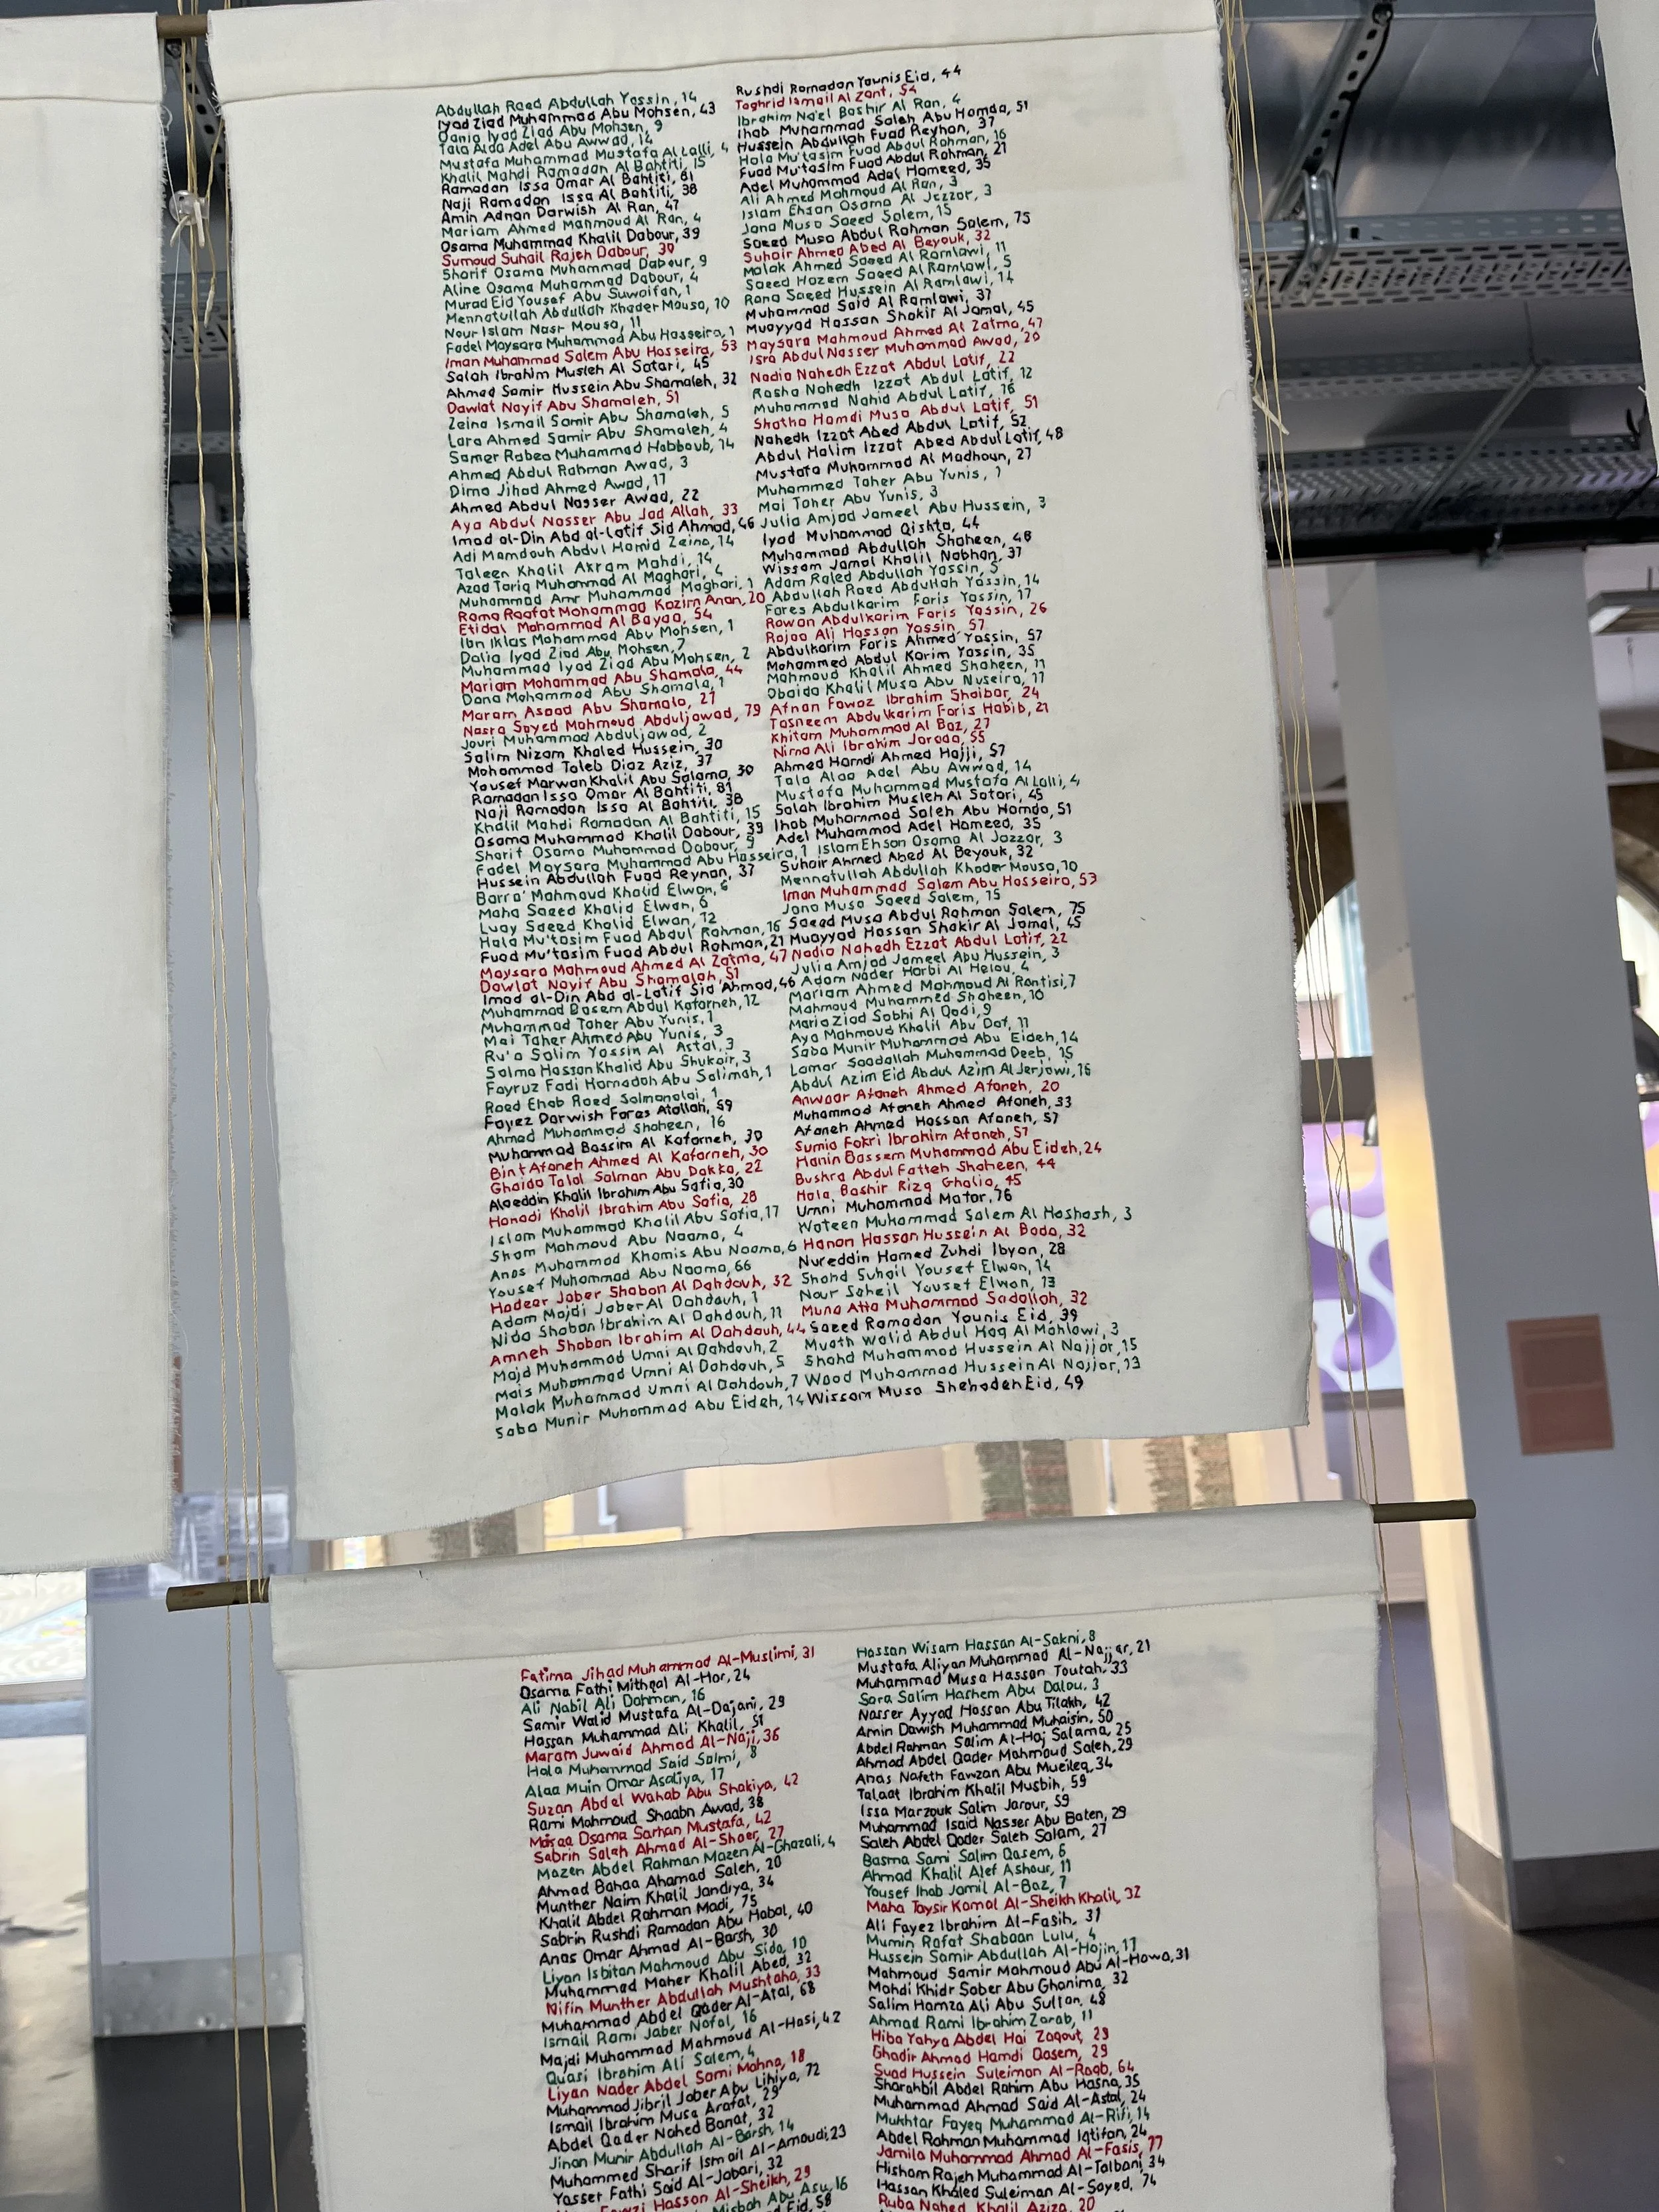 Abdullah Raed Abdullah Yassin, 14
Iyad Ziad Muhammad Abu Mohsen, 43
Dania Iyad Ziad Abu Mohsen, 9
Tala Alaa Adel Abu Awwad, 14
Mustafa Muhammad Mustafa Al Lalli, 4
Khalil Mahdi Ramadan Al Bahtiti, 15
Ramadan Issa Omar Al Bahtiti, 81
Naji Ramadan Issa Al Bahtiti, 38
Amin Adnan Darwish Al Ran, 47
Mariam Ahmed Mahmoud Al Ran, 4
Osama Muhammad Khalil Dabour, 39
Sumoud Suhail Rajeh Dabour, 30
Sharif Osama Muhammad Dabour, 9
Aline Osama Muhammad Dabour, 4
Murad Eid Yousef Abu Suwaifan, 1
Mennatullah Abdullah Khader Mousa, 10
Nour Islam Nasr Mousa, 11
Fadel Maysara Muhammad Abu Hasseira, 1
Iman Muhammad Salem Abu Hasseira, 53
Salah Ibrahim Musleh Al Satari, 45
Ahmed Samir Hussein Abu Shamaleh, 32
Dawlat Nayif Abu Shamaleh, 51
Zeina Ismail Samir Abu Shamaleh, 5
Lara Ahmed Samir Abu Shamaleh, 4
Samer Rabea Muhammad Habboub, 14
Ahmed Abdul Rahman Awad, 3
Dima Jihad Ahmed Awad, 17
Ahmed Abdul Nasser Awad, 22
Aya Abdul Nasser Abu Jad Allah, 33
Imad al-Din Abd al-Latif Sid Ahmad, 46
Adi Mamdouh Abdul Hamid Zeina, 14
Taleen Khalil Akram Mahdi, 14
Azad Tariq Muhammad Al Maghari, 4
Muhammad Amr Muhammad Maghari, 1
Rama Raafat Mohammad Kazim Anan, 20
Etidal Mohammad Al Bayaa, 54
Ibn Iklas Mohammad Abu Mohsen, 1
Dalia Iyad Ziad Abu Mohsen, 7
Muhammad Iyad Ziad Abu Mohsen, 2
Mariam Mohammad Abu Shamala, 44
Dana Mohammad Abu Shamala, 1
Maram Asaad Abu Shamala, 27
Nasra Sayed Mahmoud Abduljawad, 79
Jouri Muhammad Abduljawad, 2
Salim Nizam Khaled Hussein, 30
Mohammad Taleb Diaz Aziz, 37
Yousef Marwan Khalil Abu Salama, 30
Ramadan Issa Omar Al Bahtiti, 81
Naji Ramadan Issa Al Bahtiti, 38
Khalil Mahdi Ramadan Al Bahtiti, 15
Osama Muhammad Khalil Dabour, 39
Sharif Osama Muhammad Dabour, 9
Fadel Maysara Muhammad Abu Hasseira, 1
Hussein Abdullah Fuad Reyhan, 37
Barra' Mahmoud Khalid Elwan, 6
Maha Saeed Khalid Elwan, 6
Luay Saeed Khalid Elwan, 12
Hala Mu'tasim Fuad Abdul Rahman, 16
Fuad Mu'tasim Fuad Abdul Rahman, 21
Maysara Mahmoud Ahmed Al Zatma, 47
Dawlat Nayif Abu Shamalah, 51
Imad al-Din Abd al-Latif Sid Ahmad, 46
Muhammad Basem Abdul Kafarneh, 12
Muhammad Taher Abu Yunis, 1
Mai Taher Ahmed Abu Yunis, 3
Ru'a Salim Yassin Al Astal, 3
Salma Hassan Khalid Abu Shukair, 3
Fayruz Fadi Hamadah Abu Salimah, 1
Raed Ehab Raed Salmanalai, 1
Fayez Darwish Fares Atallah, 59
Ahmad Muhammad Shaheen, 16
Muhammad Bassim Al Kafarneh, 30
Bint Afaneh Ahmed Al Kafarneh, 30
Ghaida Talal Salman Abu Dakka, 22
Alaeddin Khalil Ibrahim Abu Safia, 30
Hanadi Khalil Ibrahim Abu Safia, 28
Islam Muhammad Khalil Abu Safia, 17
Sham Mahmoud Abu Naama, 4
Anas Muhammad Khamis Abu Naama, 6
Yousef Muhammad Abu Naama, 66
Hadeer Jaber Shaban Al Dahdouh, 32
Adam Majdi Jaber Al Dahdouh, 1
Nida Shaban Ibrahim Al Dahdouh, 11
Amneh Shaban Ibrahim Al Dahdouh, 44
Majd Muhammad Umni Al Dahdouh, 2
Mais Muhammad Umni Al Dahdouh, 5
Malak Muhammad Umni Al Dahdouh, 7
Saba Munir Muhammad Abu Eideh, 14
Rushdi Ramadan Younis Eid, 44
Taghrid Ismail Al Zant, 54
Ibrahim Na'el Bashir Al Ran, 4
Ihab Muhammad Saleh Abu Hamda, 51
Hussein Abdullah Fuad Reyhan, 37
Hala Mu'tasim Fuad Abdul Rahman, 16
Fuad Mu'tasim Fuad Abdul Rahman, 21
Adel Muhammad Adel Hameed, 35
Ali Ahmed Mahmoud Al Ran, 3
Islam Ehsan Osama Al Jazzar, 3
Jana Musa Saeed Salem, 15
Saeed Musa Abdul Rahman Salem, 75
Suhair Ahmed Abed Al Beyouk, 32
Malak Ahmed Saeed Al Ramlawi, 11
Saeed Hazem Saeed Al Ramlawi, 5
Rana Saeed Hussein Al Ramlawi, 14
Muhammad Said Al Ramlawi, 37
Muayyad Hassan Shakir Al Jamal, 45
Maysara Mahmoud Ahmed Al Zatma, 47
Isra Abdul Nasser Muhammad Awad, 20
Nadia Nahedh Ezzat Abdul Latif, 22
Rasha Nahedh Izzat Abdul Latif, 12
Muhammad Nahid Abdul Latif, 16
Shatha Hamdi Musa Abdul Latif, 51
Nahedh Izzat Abed Abdul Latif, 52
Abdul Halim Izzat Abed Abdul Latif, 48
Mustafa Muhammad Al Madhoun, 27
Muhammed Taher Abu Yunis, 1
Mai Taher Abu Yunis, 3
Julia Amjad Jameel Abu Hussein, 3
Iyad Muhammad Qishta, 44
Muhammad Abdullah Shaheen, 48
Wissam Jamal Khalil Nabhan, 37
Adam Raied Abdullah Yassin, 5
Abdullah Raed Abdullah Yassin, 14
Fares Abdulkarim Faris Yassin, 17
Rawan Abdulkarim Faris Yassin, 26
Rajaa Ali Hassan Yassin, 57
Abdulkarim Faris Ahmed Yassin, 57
Mohammed Abdul Karim Yassin, 35
Mahmoud Khalil Ahmed Shaheen, 11
Obaida Khalil Musa Abu Nuseira, 17
Afnan Fawaz Ibrahim Shaibar, 24
Tasneem Abdulkarim Faris Habib, 21
Khitam Muhammad Al Baz, 27
Nirma Ali Ibrahim Jarada, 55
Ahmed Hamdi Ahmed Hajji, 57
Tala Alaa Adel Abu Awwad, 14
Mustafa Muhammad Mustafa Al Lalli, 4
Salah Ibrahim Musleh Al Satari, 45
Ihab Muhammad Saleh Abu Hamda, 51
Adel Muhammad Adel Hameed, 35
Islam Ehsan Osama Al Jazzar, 3
Suhair Ahmed Abed Al Beyouk, 32
Mennatullah Abdullah Khader Mousa, 10
Iman Muhammad Salem Abu Hasseira, 53
Jana Musa Saeed Salem, 15
Saeed Musa Abdul Rahman Salem, 75
Muayyad Hassan Shakir Al Jamal, 45
Nadia Nahedh Ezzat Abdul Latif, 22
Julia Amjad Jameel Abu Hussein, 3
Adam Nader Harbi Al Helou, 4
Mariam Ahmed Mahmoud Al Rantisi, 7
Mahmoud Muhammed Shaheen, 10
Maria Ziad Sobhi Al Qadi, 9
Aya Mahmoud Khalil Abu Daf, 11
Saba Munir Muhammad Abu Eideh, 14
Lamar Saadallah Muhammad Deeb, 15
Abdul Azim Eid Abdul Azim Al Jerjawi, 16
Anwaar Afaneh Ahmed Afaneh, 20
Muhammad Afaneh Ahmed Afaneh, 33
Afaneh Ahmed Hassan Afaneh, 57
Sumia Fakri Ibrahim Afaneh, 57
Hanin Bassem Muhammad Abu Eideh, 24
Bushra Abdul Fatteh Shaheen, 44
Hala, Bashir Rizq Ghalia, 45
Umni Muhammad Matar, 76
Wateen Muhammad Salem Al Hashash, 3
Hanan Hassan Hussein Al Bada, 32
Nureddin Hamed Zuhdi Ibyan, 28
Shahd Suhail Yousef Elwan, 14
Nour Soheil Yousef Elwan, 13
Muna Atta Muhammad Sadallah, 32
Saeed Ramadan Younis Eid, 39
Muath Walid Abdul Haq Al Mahlawi, 3
Shahd Muhammad Hussein Al Najjar, 15
Waad Muhammad Hussein Al Najjar, 13
Wissam Musa Shehadeh Eid, 49
Fatima Jihad Muhammad Al-Muslimi, 31
Osama Fathi Mithqal Al-Hor, 24
Ali Nabil Ali Dahman, 16
Samir Walid Mustafa Al-Dajani, 29
Hassan Muhammad Ali Khalil, 51
Maram Juwaid Ahmad Al-Naji, 36
Hala Muhammad Said Salmi, 8
Alaa Muin Omar Asaliya, 17
Suzan Abdel Wahab Abu Shakiya, 42
Rami Mahmoud Shaabn Awad, 38
Maisaa Osama Sarhan Mustafa, 42
Sabrin Salah Ahmad Al-Shaer, 27
Mazen Abdel Rahman Mazen Al-Ghazali, 4
Ahmad Bahaa Ahamad Saleh, 20
Munther Naim Khalil Jandiya, 34
Khalil Abdel Rahman Madi, 75
Sabrin Rushdi Ramadan Abu Habal, 40
Anas Omar Ahmad Al-Barsh, 30
Liyan Isbitan Mahmoud Abu Sido, 10
Muhammad Maher Khalil Abed, 32
Nifin Munther Abdullah Mushtaha, 33
Muhammad Abdel Qader Al-Atal, 68
Ismail Rami Jaber Nofal, 16
Majdi Muhammad Mahmoud Al-Hasi, 42
Quasi Ibrahim Ali Salem, 4
Liyan Nader Abdel Sami Mahna, 18
Muhammad Jibril Jaber Abu Lihiya, 72
Ismail Ibrahim Musa Arafat, 29
Abdel Qader Nahed Banat, 32
Jinan Munir Abdullah Al-Barsh, 14
Muhammed Sharif Ismail Al-Amoudi, 23
Yasser Fathi Said Al-Jabari, 32
Hasson Al-Sheikh, 29
Misbah Abu Asu, 16
Eid, 58
Hassan Wisam Hassan Al-Sakni, 8
Mustafa Aliyan Muhammad Al-Najjar, 21
Muhammad Musa Hassan Toutah, 33
Sara Salim Hashem Abu Dalou, 3
Nasser Ayyad Hassan Abu Tilakh, 42
Amin Dawish Muhammad Muhaisin, 50
Abdel Rahman Salim Al-Haj Salama, 25
Ahmad Abdel Qader Mahmoud Saleh, 29
Anas Nafeth Fawzan Abu Mueileq, 34
Talaat Ibrahim Khalil Musbih, 59
Issa Marzouk Salim Jarour, 59
Muhammad Isaid Nasser Abu Baten, 29
Saleh Abdel Qader Saleh Salam, 27
Basma Sami Salim Qasem, 6
Ahmad Khalil Atef Ashour, 11
Yousef Ihab Jamil Al-Baz, 7
Maha Taysir Kamal Al-Sheikh Khalil, 32
Ali Fayez Ibrahim Al-Fasih, 31
Mumin Rafat Shabaan Lulu, 4
Hussein Samir Abdullah Al-Hajin, 17
Mahmoud Samir Mahmoud Abu Al-Hawa, 31
Mahdi Khidr Saber Abu Ghanima, 32
Salim Hamza Ali Abu Sultan, 48
Ahmad Rami Ibrahim Zarab, 11
Hiba Yahya Abdel Hai Zaqout, 29
Ghadir Ahmad Hamdi Qasem, 29
Suad Hussein Suleiman Al-Raqb, 64
Sharahbil Abdel Rahim Abu Hasna, 35
Muhammad Ahmad Said Al-Astal, 24
Mukhtar Fayeq Muhammad Al-Rifi, 14
Abdel Rahman Muhammad Iqtifan, 24
Jamila Muhammad Ahmad Al-Fasis, 77
Hisham Rajeh Muhammad Al-Talbani, 34
Hassan Khaled Suleiman Al-Sayed, 74
Ruba Nahed Khalil Aziza, 20